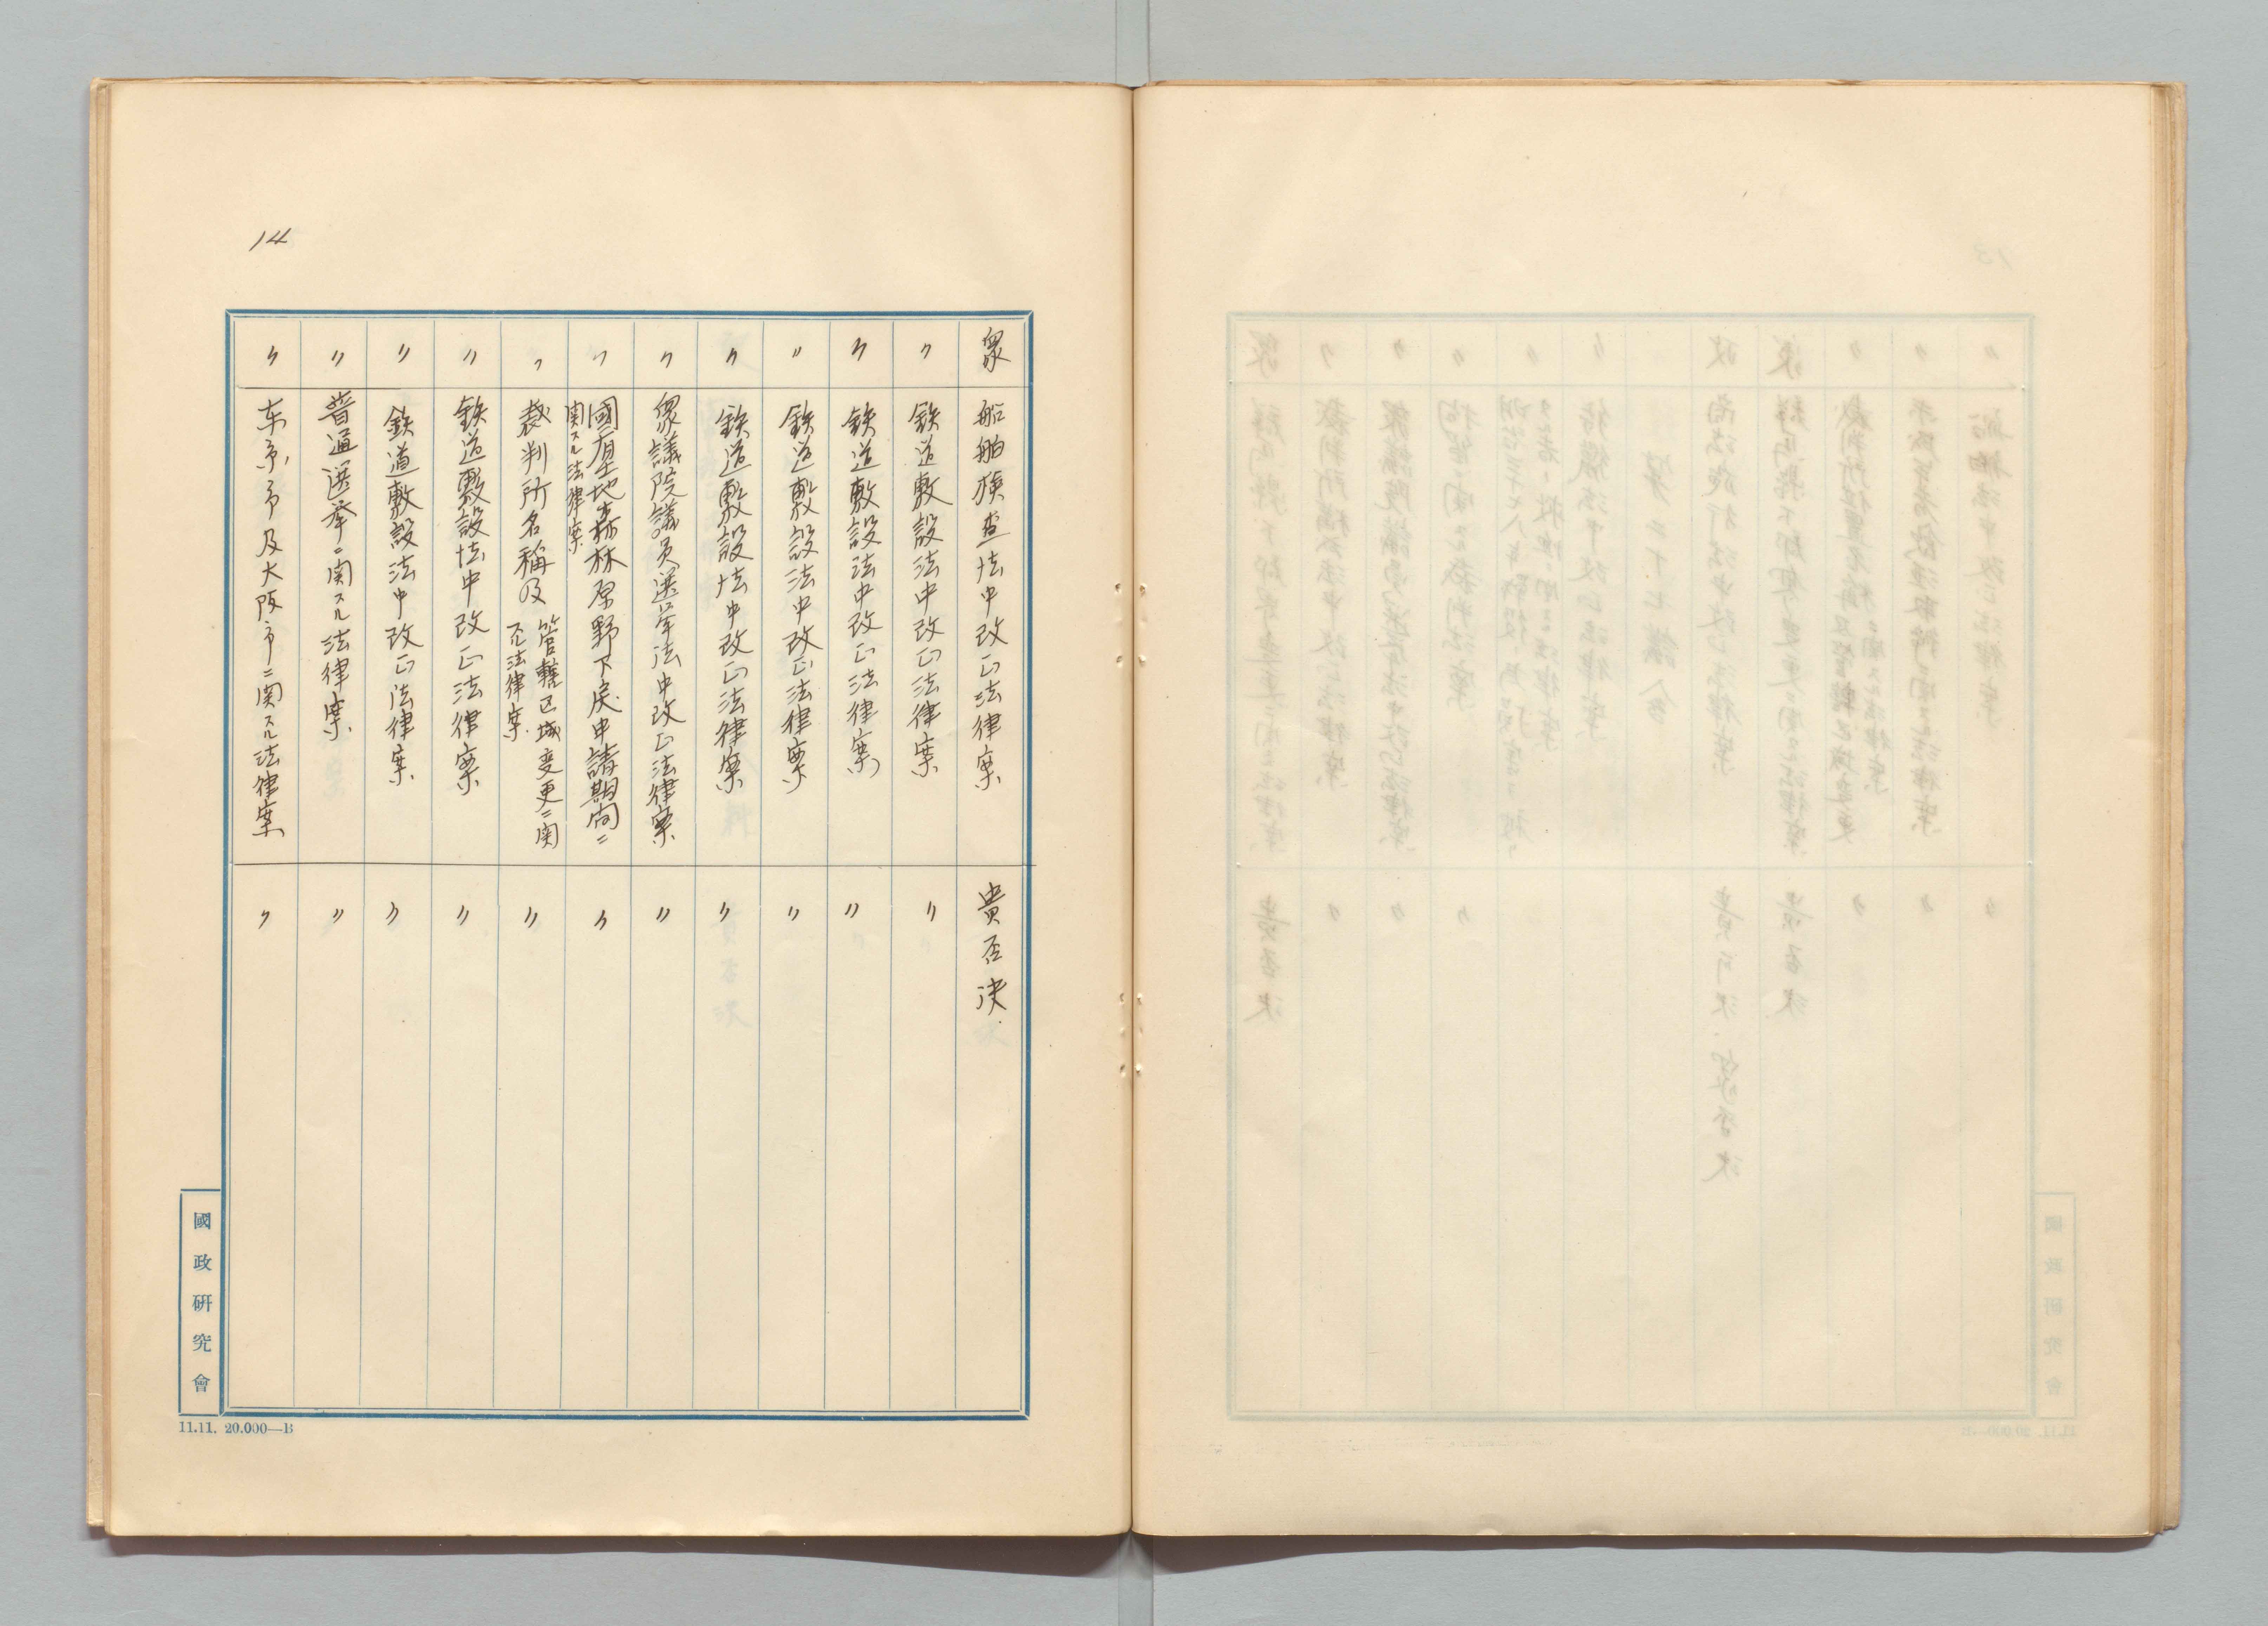 14
衆 船舶検査法中改正法律案 貴否決.
〃 鉄道敷設法中改正法律案 〃
〃 鉄道敷設法中改正法律案 〃
〃 鉄道敷設法中改正法律案 〃
〃 鉄道敷設法中改正法律案 〃
〃 衆議院議員選挙法中改正法律案 〃
〃 國有土地森林原野下戻申請期間ニ
関スル法律案 〃
〃 裁判所名称及管轄区域変更ニ関
スル法律案 〃
〃 鉄道敷設法中改正法律案 〃
〃 鉄道敷設法中改正法律案 〃
〃 普通選挙ニ関スル法律案 〃
〃 東京市及大阪市ニ関スル法律案 〃
國政研究會
11.11. 20.000—B